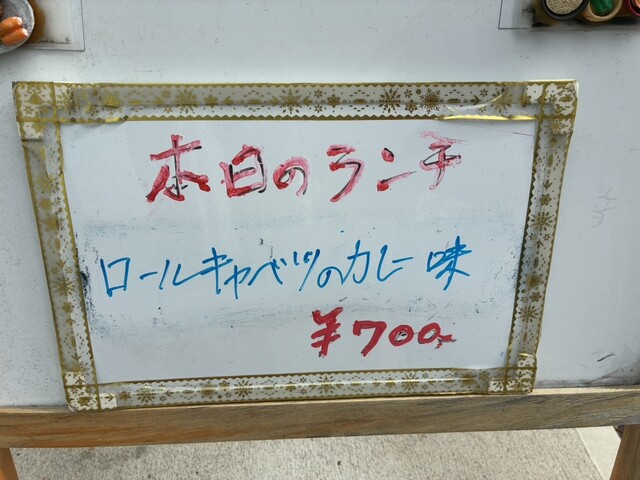 本日のランチ
ロールキャベツのカレー味
¥700